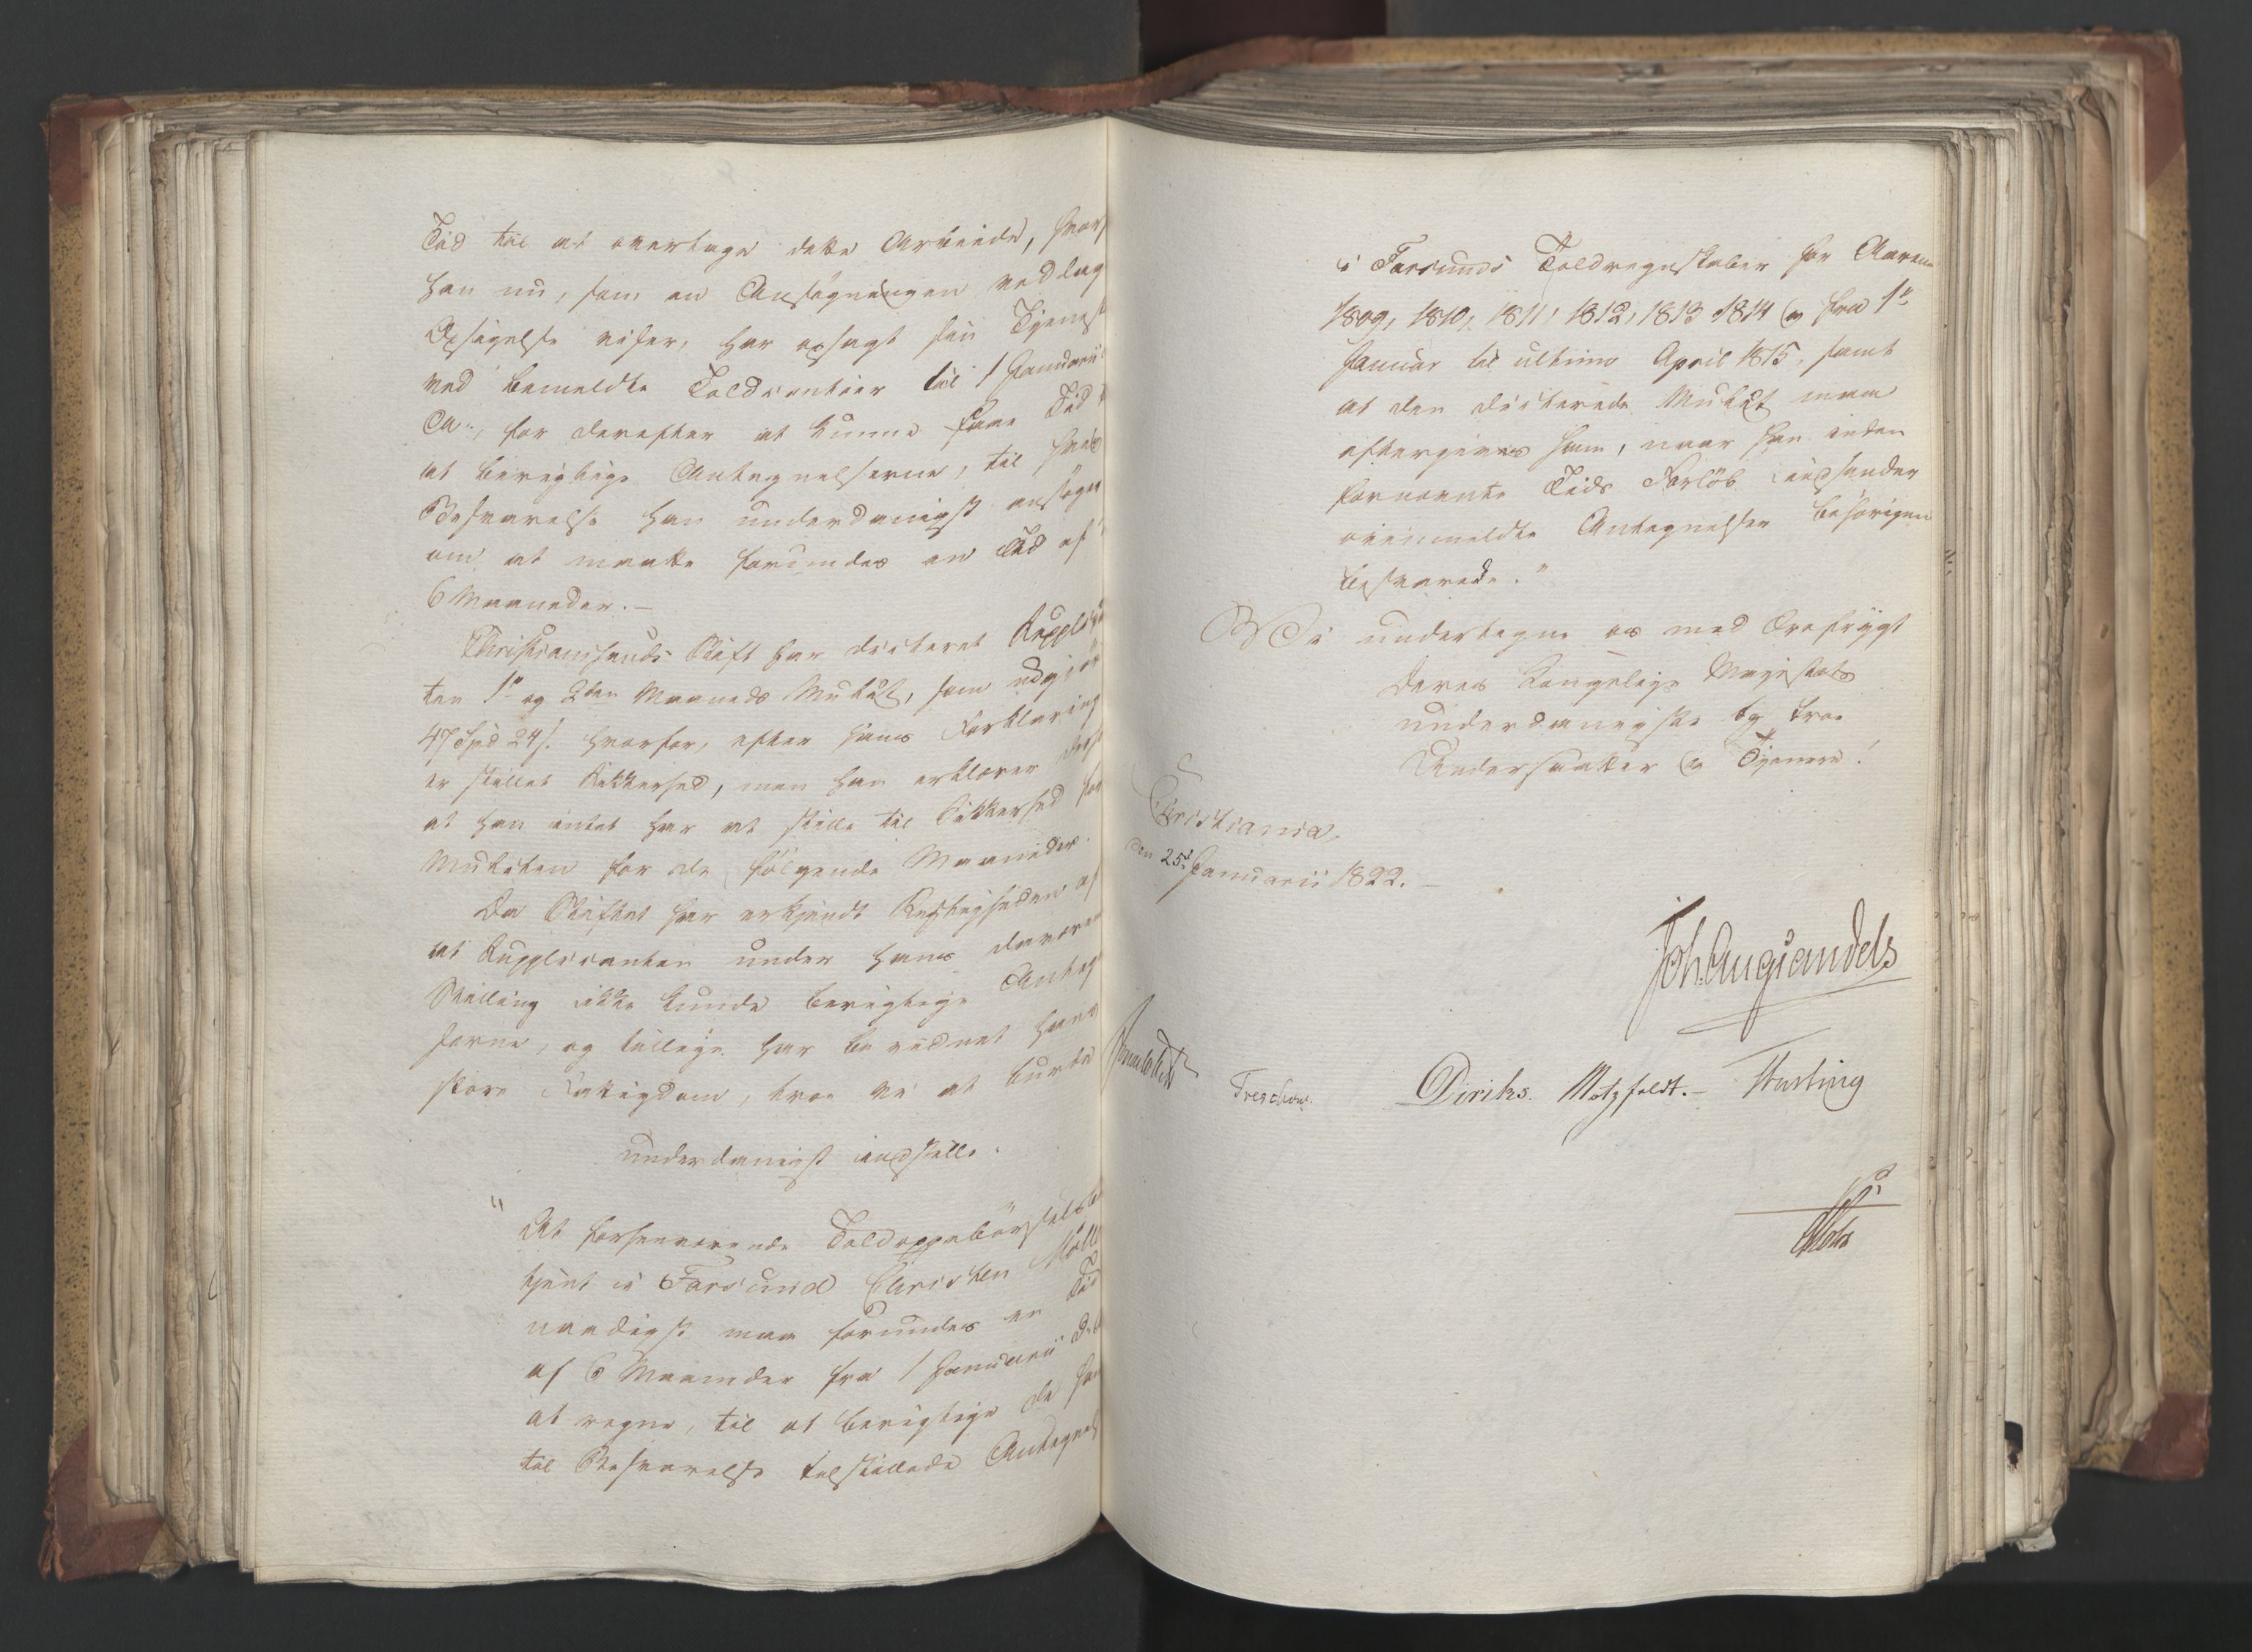 Tid til at overtage dette Arbeide, hvor
han nu, som en Ansøgningen vedlag
Opsigelse viser, har opsagt sin Tjenest
ved bemeldte Toldcontoir til 1 Januarii
A.., for derefter at kunne faae Tid
at berigtige Antegnelserne, til hvis
Besvarelse han underdanigst ansøger
om at maatte forundes en Tid af
6 Maaneder.–
Christiansands Stift har dicteret Supplica
ten 1ste og 2den Maaneds Mulct, som udgjør
47 Spd 24 s. hvorfor, efter hans Forklaring
er stillet Sikkerhed, men han erklærer
at han intet har at stille til Sikkerhed for
Mulcten for de følgende Maaneder.
Da Stiftet har erkjendt Rigtigheden af
at Supplicanten under hans daværen
Stilling ikke kunde berigtige Anteg
serne, og tillige har bevidnet hans
store Fattigdom, troe vi at burde
underdanigst indstille:
" At forhenværende Toldoppebørselsbe
tjent i Farsund Christen Møll
naadigst maa forundes en Tid
af 6 Maaneder fra 1 Januarii d.A.
at regne, til at berigtige de ham
til Besvarelse tilstillede Antegnels
i Farsunds Toldregnskaber for Aarene
1809, 1810, 1811, 1812, 1813 1814 og fra 1ste
Januar til ultimo April 1815, samt
at den dicterede Mulct maa
eftergives ham, naar han inden
fornævnte Tids Forløb indsender
ovenmeldte Antegnelser behørigen
besvarede."
Vi undertegne os med Ærefrygt
Deres Kongelige Majestæts
underdanigste og troe
Undersaatter og Tjenere!
Christiania,
den 25de Januarii 1822.–
Joh. Aug Sandels
Sommerhielm
Treschow.
Diriks.
Motzfeldt.–
Hasting
Holst